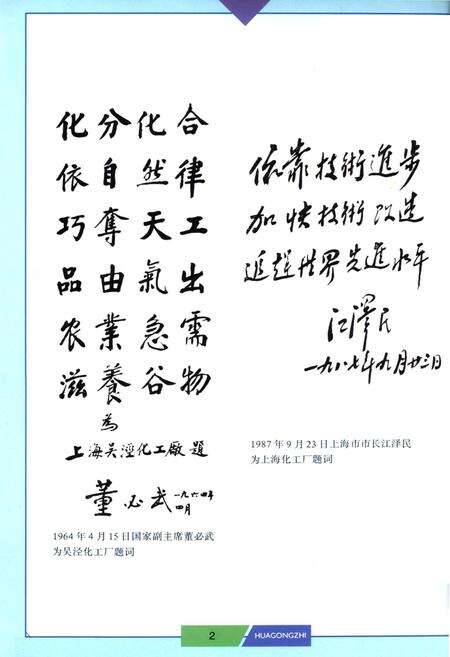 化分化合
依自然律
巧奪天工
品由氣出
农業急需
滋養谷物
為
上海吴涇化工廠題
董必武 一九六四年
四月
1964年4月15日国家副主席董必武
为吴泾化工厂题词
依靠技術進步
加快技術改造
追趕世界先進水平
江澤民
一九八七年九月廿三日
1987年9月23日上海市市长江泽民
为上海化工厂题词
2
HUAGONGZHI